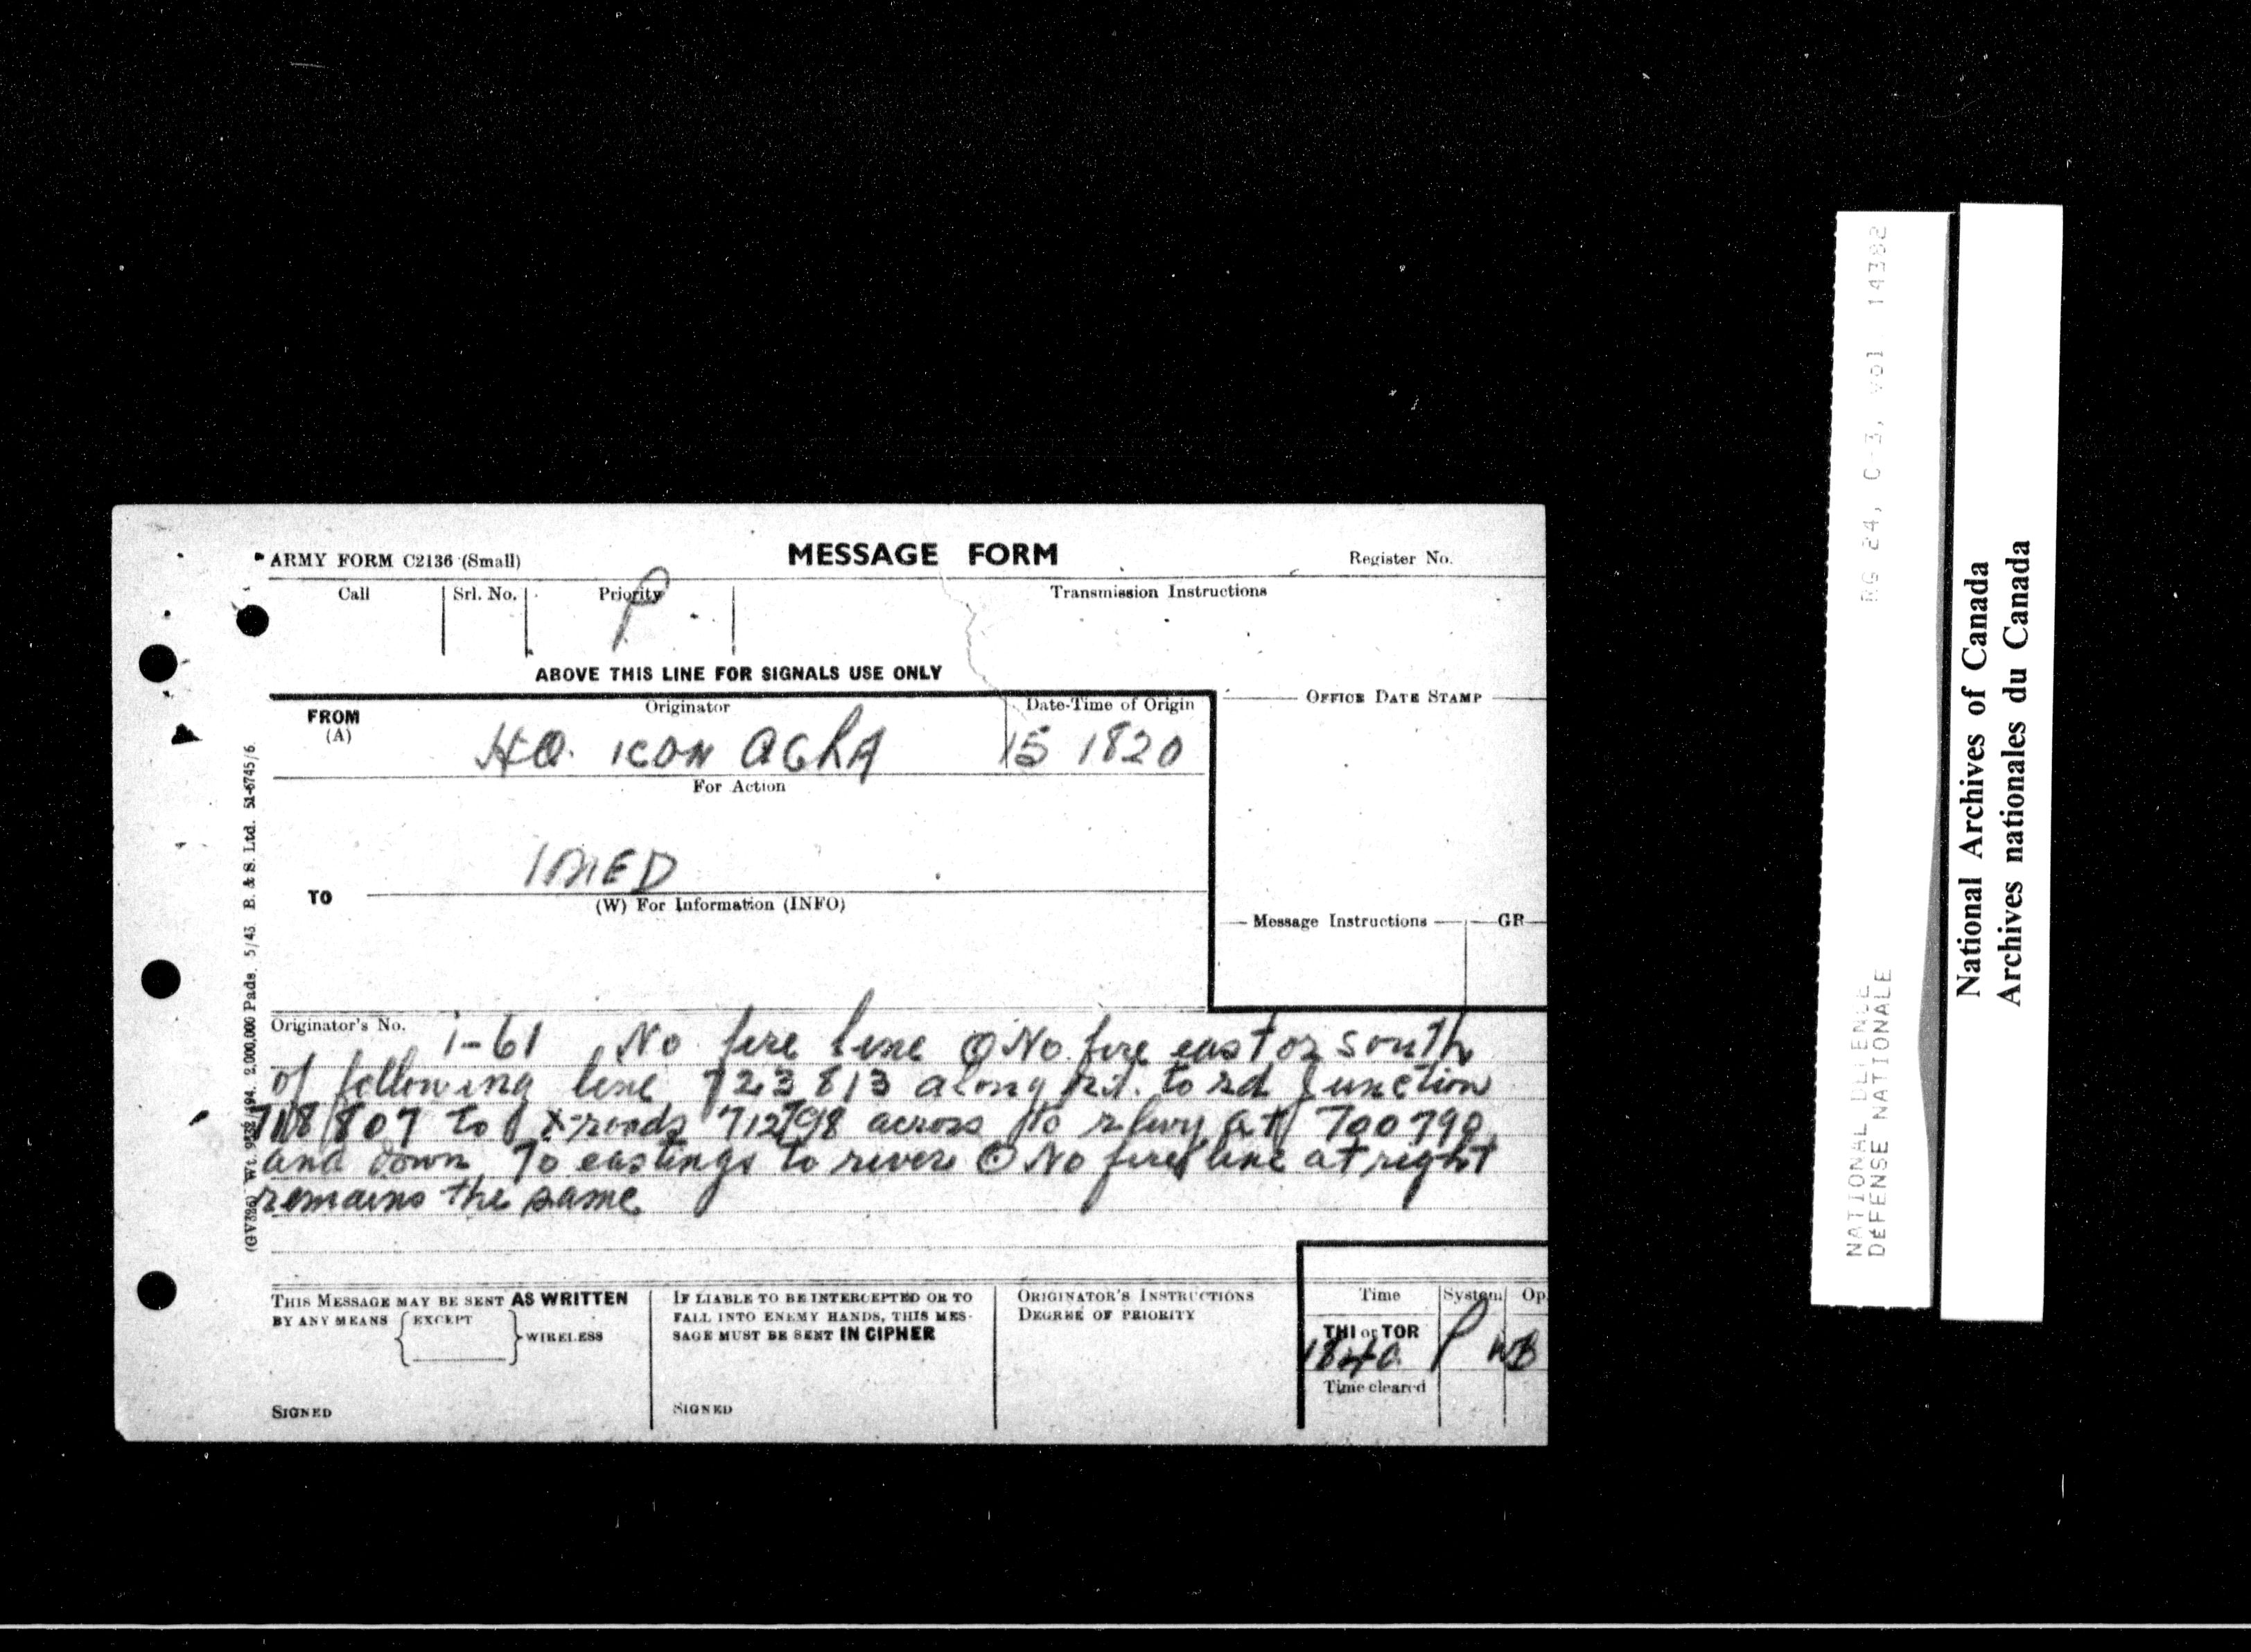 ARMY FORM C2136 (Small)
MESSAGE FORM
Register No.
Call
Srl. No.
Priority
P
Transmission Instructions
ABOVE THIS LINE FOR SIGNALS USE ONLY
FROM
(A)
Originator
HQ. ICON AGRA
Date-Time of Origin
15 1820
OFFICE DATE STAMP
For Action
1 MED
TO
(W) For Information (INFO)
Message Instructions
GR
Originator's No.
i-61 No fire line ⊙ No fire east or south
of following line 723813 along rd. to rd junction
718807 to X-roads 712798 across to rlwy at 700790
and down 70 eastings to rivers ⊙ No fire line at right
remains the same
THIS MESSAGE MAY BE SENT AS WRITTEN
BY ANY MEANS { EXCEPT } WIRELESS
SIGNED
IF LIABLE TO BE INTERCEPTED OR TO
FALL INTO ENEMY HANDS, THIS MES-
SAGE MUST BE SENT IN CIPHER
SIGNED
ORIGINATOR'S INSTRUCTIONS
DEGREE OF PRIORITY
Time
System
Op
THI or TOR
1840 P WB
Time cleared
2,000,000 Pads. 5/43 B. & S. Ltd. 51-6745/6
RG 24, C-3, vol 14382
NATIONAL DEFENCE
DÉFENSE NATIONALE
National Archives of Canada
Archives nationales du Canada